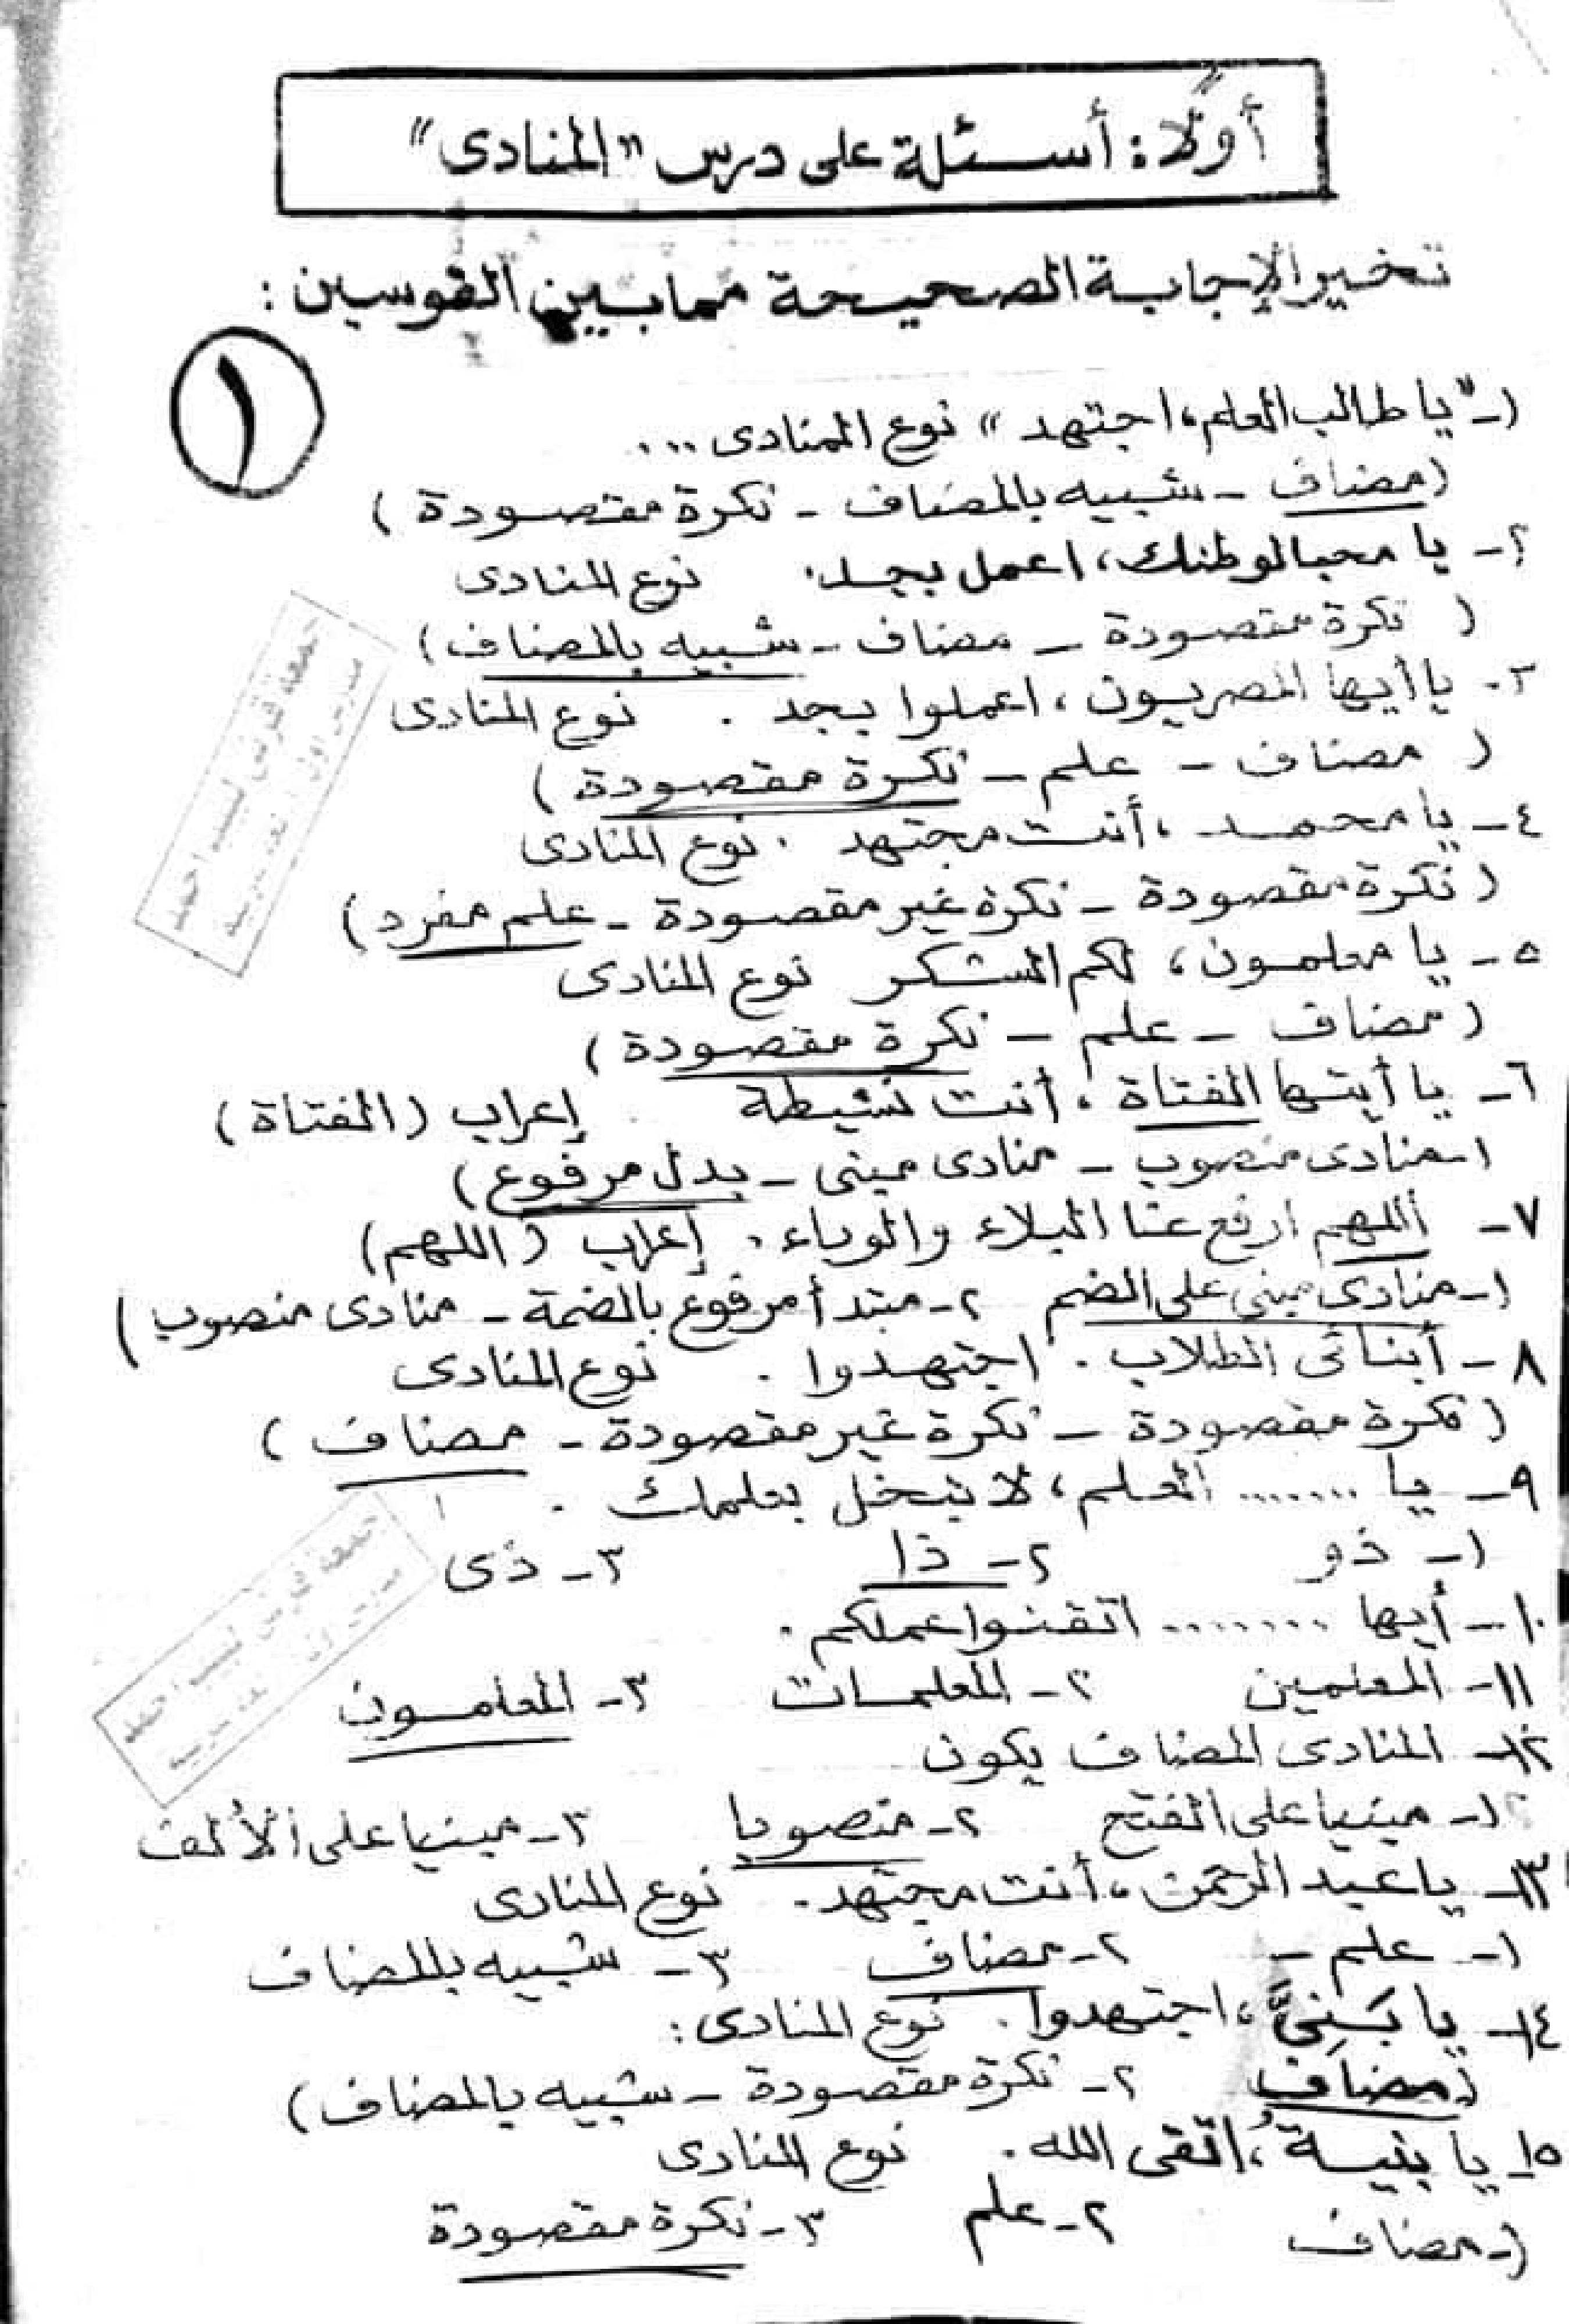 أولًا: أسئلة على درس "المنادى"
تخير الإجابة الصحيحة مما بين القوسين:
١
١- "يا طالب العلم، اجتهد" نوع المنادى ...
(مضاف - شبيه بالمضاف - نكرة مقصودة)
٢- يا محبا لوطنك، اعمل بجد. نوع المنادى
( نكرة مقصودة - مضاف - شبيه بالمضاف)
٣- يا أيها المصريون، اعملوا بجد . نوع المنادى
( مضاف - علم - نكرة مقصودة)
٤- يا محمد، أنت مجتهد . نوع المنادى
(نكرة مقصودة - نكرة غير مقصودة - علم مفرد)
٥- يا معلمون، لكم الشكر نوع المنادى
(مضاف - علم - نكرة مقصودة)
٦- يا أيتها الفتاة، أنت نشيطة . إعراب (الفتاة)
١- منادى منصوب - منادى مبنى - بدل مرفوع)
٧- اللهم ارفع عنا البلاء والوباء. إعراب (اللهم)
١- منادى مبنى على الضم ٢- مبتدأ مرفوع بالضمة - منادى منصوب)
٨- أبنائى الطلاب. اجتهدوا . نوع المنادى
(نكرة مقصودة - نكرة غير مقصودة - مضاف)
٩- يا ....... العلم، لا تبخل بعلمك .
١- ذو ٢- ذا ٣- ذى
١٠- أيها ........ اتقنوا عملكم.
١١- المعلمين ٢- المعلمات ٣- المعلمون
١٢- المنادى المضاف يكون
١- مبنيا على الفتح ٢- منصوبا ٣- مبنيا على الألف
١٣- يا عبد الرحمن، أنت مجتهد. نوع المنادى
١- علم - ٢- مضاف ٣- شبيه بالمضاف
١٤- يا بَنِىَّ، اجتهدوا. نوع المنادى:
(مضاف ٢- نكرة مقصودة - شبيه بالمضاف)
١٥- يا بنيةُ، اتقى الله. نوع المنادى
١- مضاف ٢- علم ٣- نكرة مقصودة